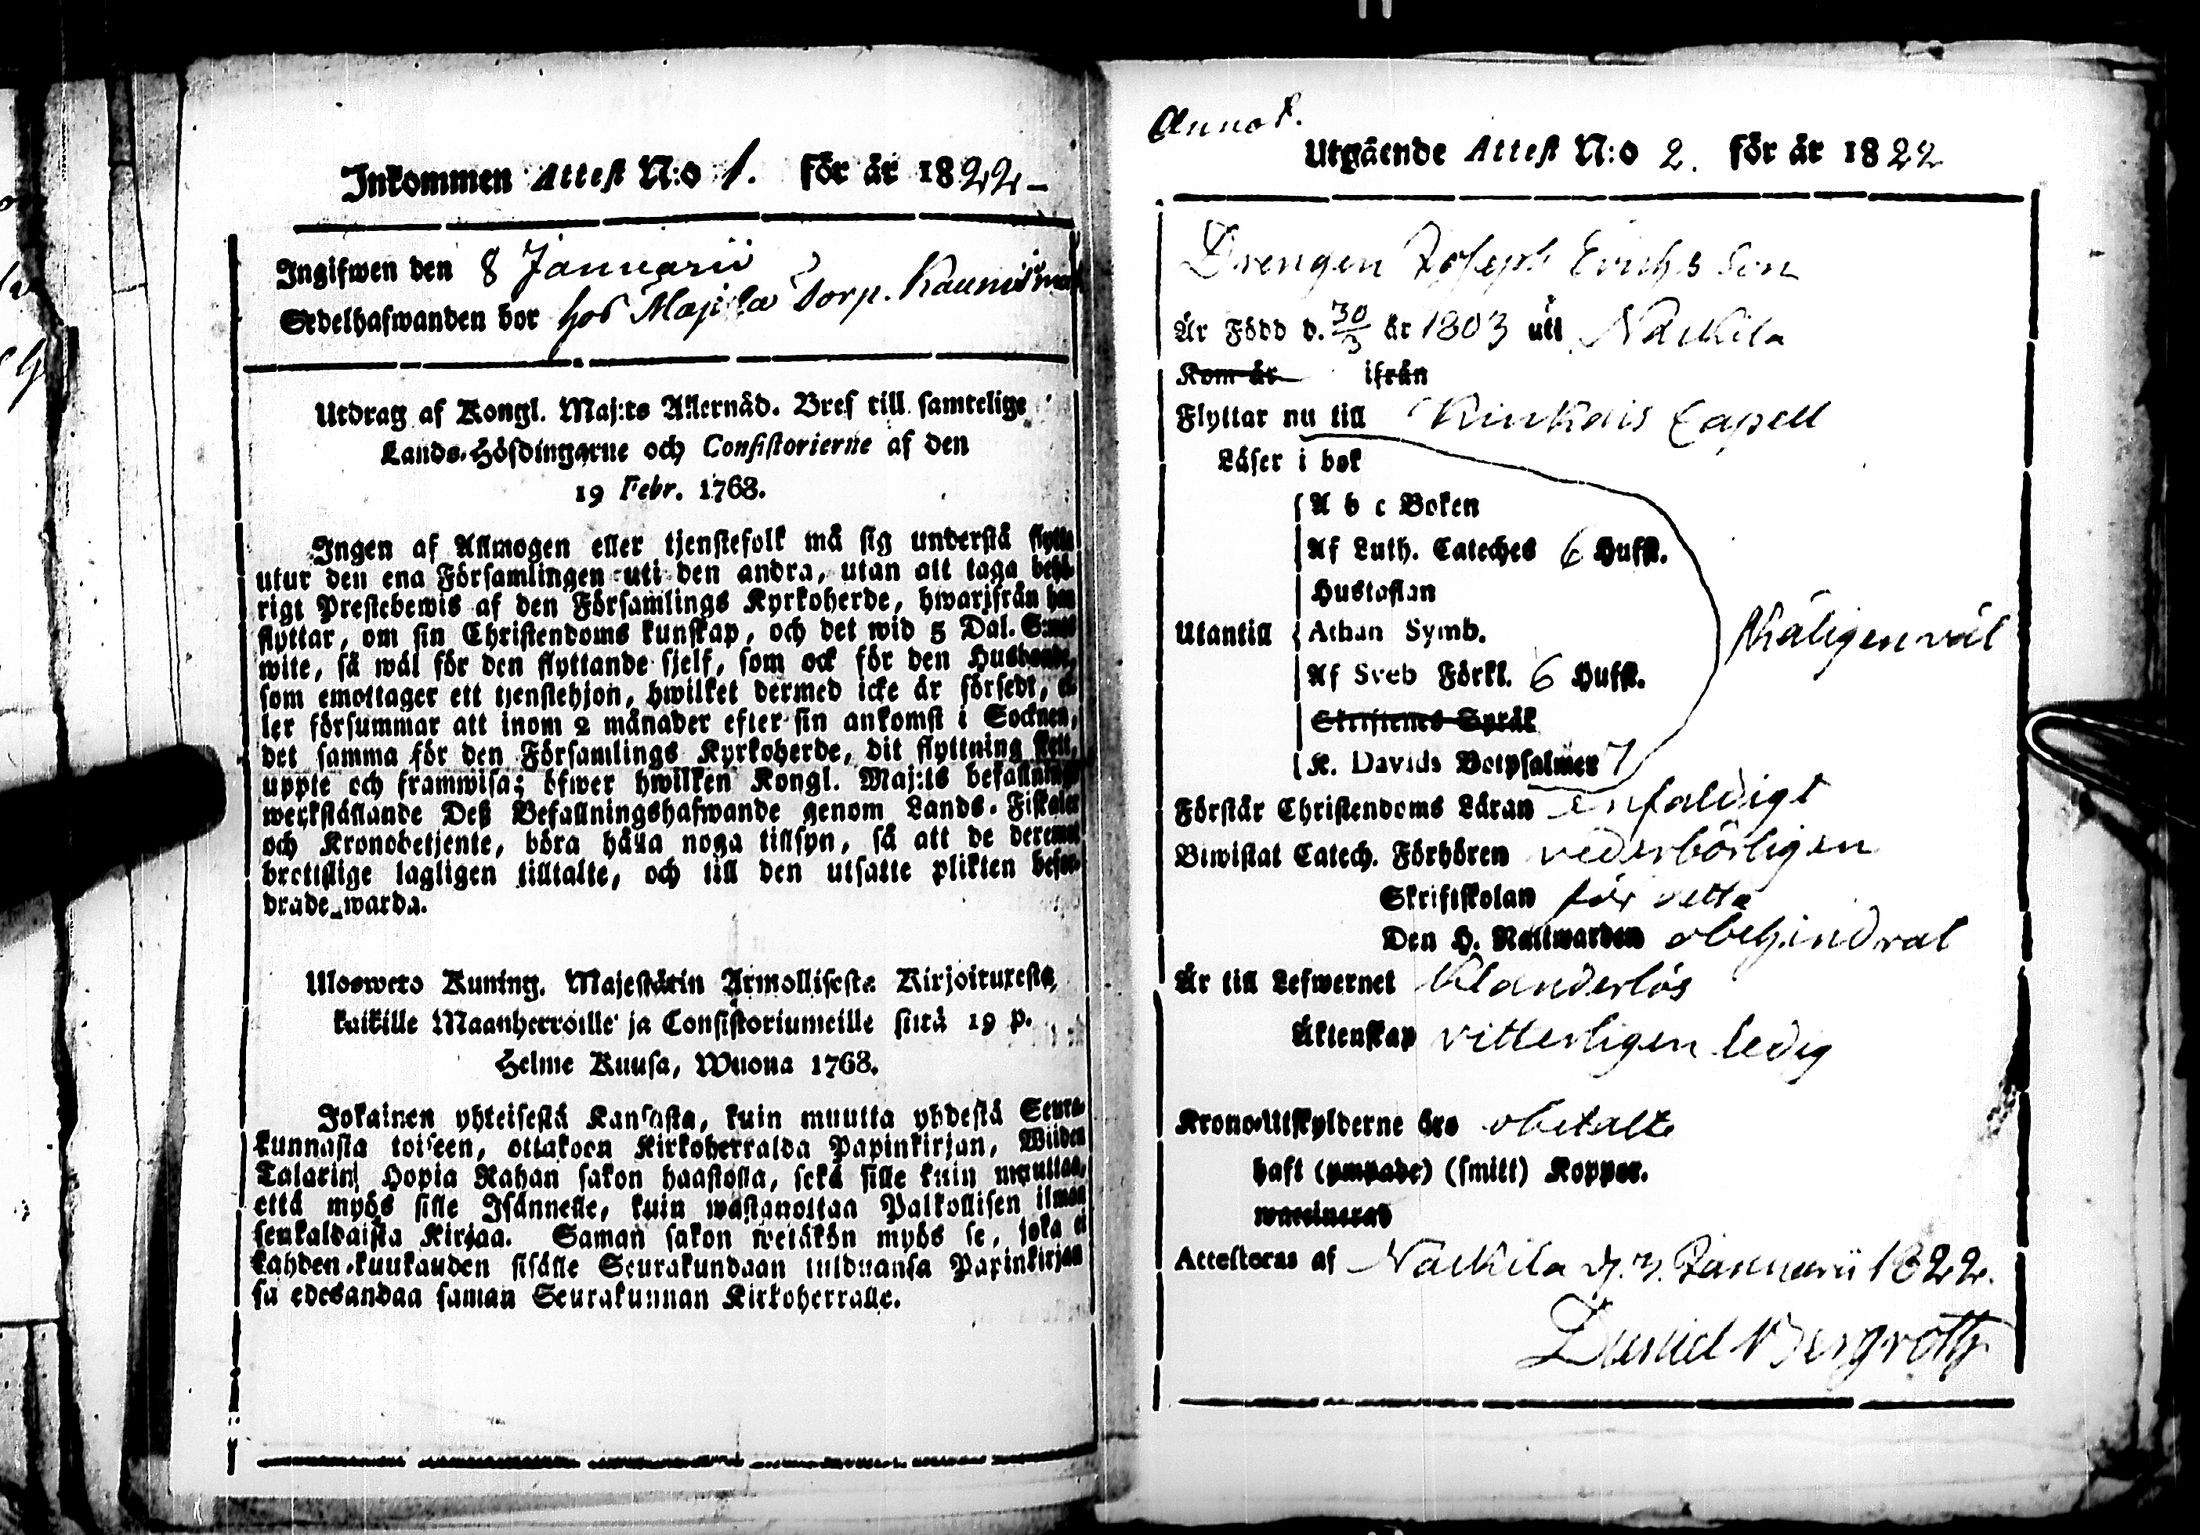 Inkommen Attest N:o 1. för år 1822
Ingifwen den 8 Januarii
Sedelhafwanden bor hos Torp.
Utdrag af Kongl. Maj:ts Allernåd. Bref till samtelige
Lands-Höfdingarne och Consistorierne af den
19 Febr. 1768.
Ingen af Allmogen eller tjenstefolk må sig understå flytta
utur den ena Församlingen uti den andra, utan att taga behö-
rigt Prestebewis af den Församlings Kyrkoherde, hwarifrån han
flyttar, om sin Christendoms kunskap, och det wid 5 Dal. S:mts
wite, så wäl för den flyttande sjelf, som ock för den Husbonde,
som emottager ett tjenstehjon, hwilket dermed icke är försedt, el-
ler försummar att inom 2 månader efter sin ankomst i Socknen,
det samma för den Församlings Kyrkoherde, dit flyttning skett,
uppte och framwisa; öfwer hwilken Kongl. Maj:ts befallnings
werkställande Deß Befallningshafwande genom Lands-Fiskaler
och Kronobetjente, böra hålla noga tillsyn, så att de deremot
brottslige lagligen tilltalte, och till den utsatte plikten befor-
drade warda.
Uloswero Kuning. Majestätin Armollisesta Kirjoituxesta,
kaikille Maanherroille ja Consistoriumeille siitä 19 p.
Helme Kuusa, Wuona 1768.
Jokainen yhteisestä Kansasta, kuin muutta yhdestä Seura-
kunnasta toiseen, ottakoen Kirkoherralda Papinkirjan, Wiiden
Talarin Hopia Rahan sakon haastolla, sekä sille kuin muuttaa,
että myös sille Isännelle, kuin wastanottaa Palkollisen ilman
senkaldaista Kirjaa. Saman sakon wetäkön myös se, joka ei
kahden kuukauden sisälle Seurakundaan tulduansa Papinkirjaa
sa edesandaa saman Seurakunnan Kirkoherralle.
Annot.
Utgående Attest N:o 2. för år 1822
Drengen Joseph Erichsson
Är Född d. 30/3 år 1803 uti Nackila
Kom år ifrån
Flyttar nu till Kinkais Capell
Läser i bok
A b c Boken
Af Luth. Cateches 6 Hufst.
Hustaflan
Utantill Athan Symb.
Af Sveb Förkl. 6 Hufst.
Skriftenes Språk
K. Davids Botpsalmer 7
skäligen väl
Förstår Christendoms Läran enfaldigt
Biwistat Catech. Förhören vederbörligen
Skriftskolan för detta
Den H. Nattwarden obehindrat
Är till Lefwernet Klanderlös
Äktenskap vitterligen ledig
Krono-Utskylderne äro obetalte
haft (ympade) (smitt) Koppor.
waccinerad
Attesteras af Nackila d. 3. Januarii 1822.
Daniel Bergroth